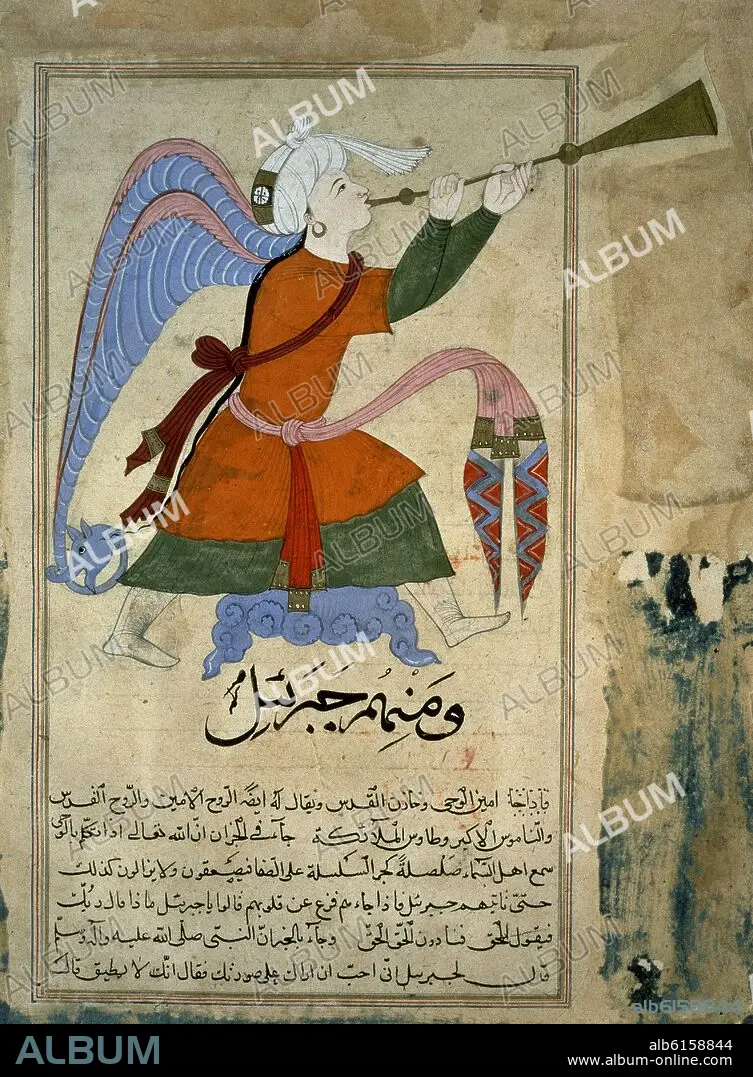 ومنهم جبرئيل م
فاذا جا امين الوحي وخازن القدس ويقال له ايضا الروح الامين والروح القدس
والناموس الاكبر وطاوس الملآئكة جآء في الخبران انّ الله تعالى اذا تكلّم بالوحي
سمع اهل السّمآء صلصلةً كجر السلسلة على الصفا فيصعقون ولا يزالون كذلك
حتّى ياتيهم جبرئيل فاذا جاءهم فزع عن قلوبهم قالوا يا جبرئيل ماذا قال ربّك
فيقول الحق فينادون الحقّ الحقّ وجآء بالخبران النبّى صلى الله عليه وآله وسلّم
قال لجبرئيل انّى احبّ ان اراك على صورتك فقال انّك لا تطيق قال
ALBUM
alb6158844
ALBUM
alb6158844
www.album-online.com